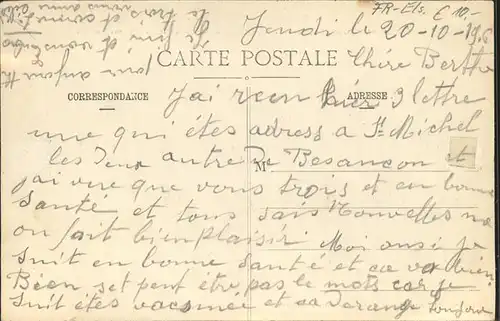 FR-Ets. € 10-
Jeudi le 20-10-1916
CARTE POSTALE
Chère Berthe
CORRESPONDANCE
ADRESSE
J'ai recu hier 3 lettre
une qui étes adress a St Michel
les deux autre De Besançon et
M
j'ai vue que vous trois et en bonne
santé et tous sais Nouvelles me
on fait bien plaisir Moi ausi je
suit en bonne santé et ca va bien
Bien set peut étre pas le mots car je
suit étes vacsiné et ca derange toujours